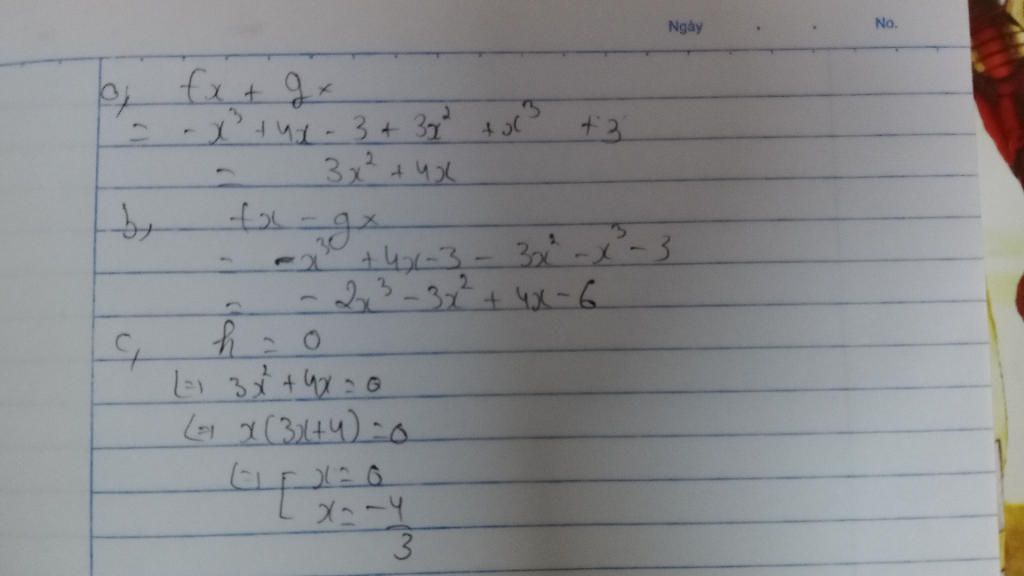 Ngày . . No.
a, fx + gx
= -x³ + 4x - 3 + 3x² + x³ + 3
= 3x² + 4x
b, fx - gx
= -x³ + 4x - 3 - 3x² - x³ - 3
= -2x³ - 3x² + 4x - 6
c, h = 0
(=) 3x² + 4x = 0
(=) x(3x+4) = 0
(=) [ x = 0
x = -4/3